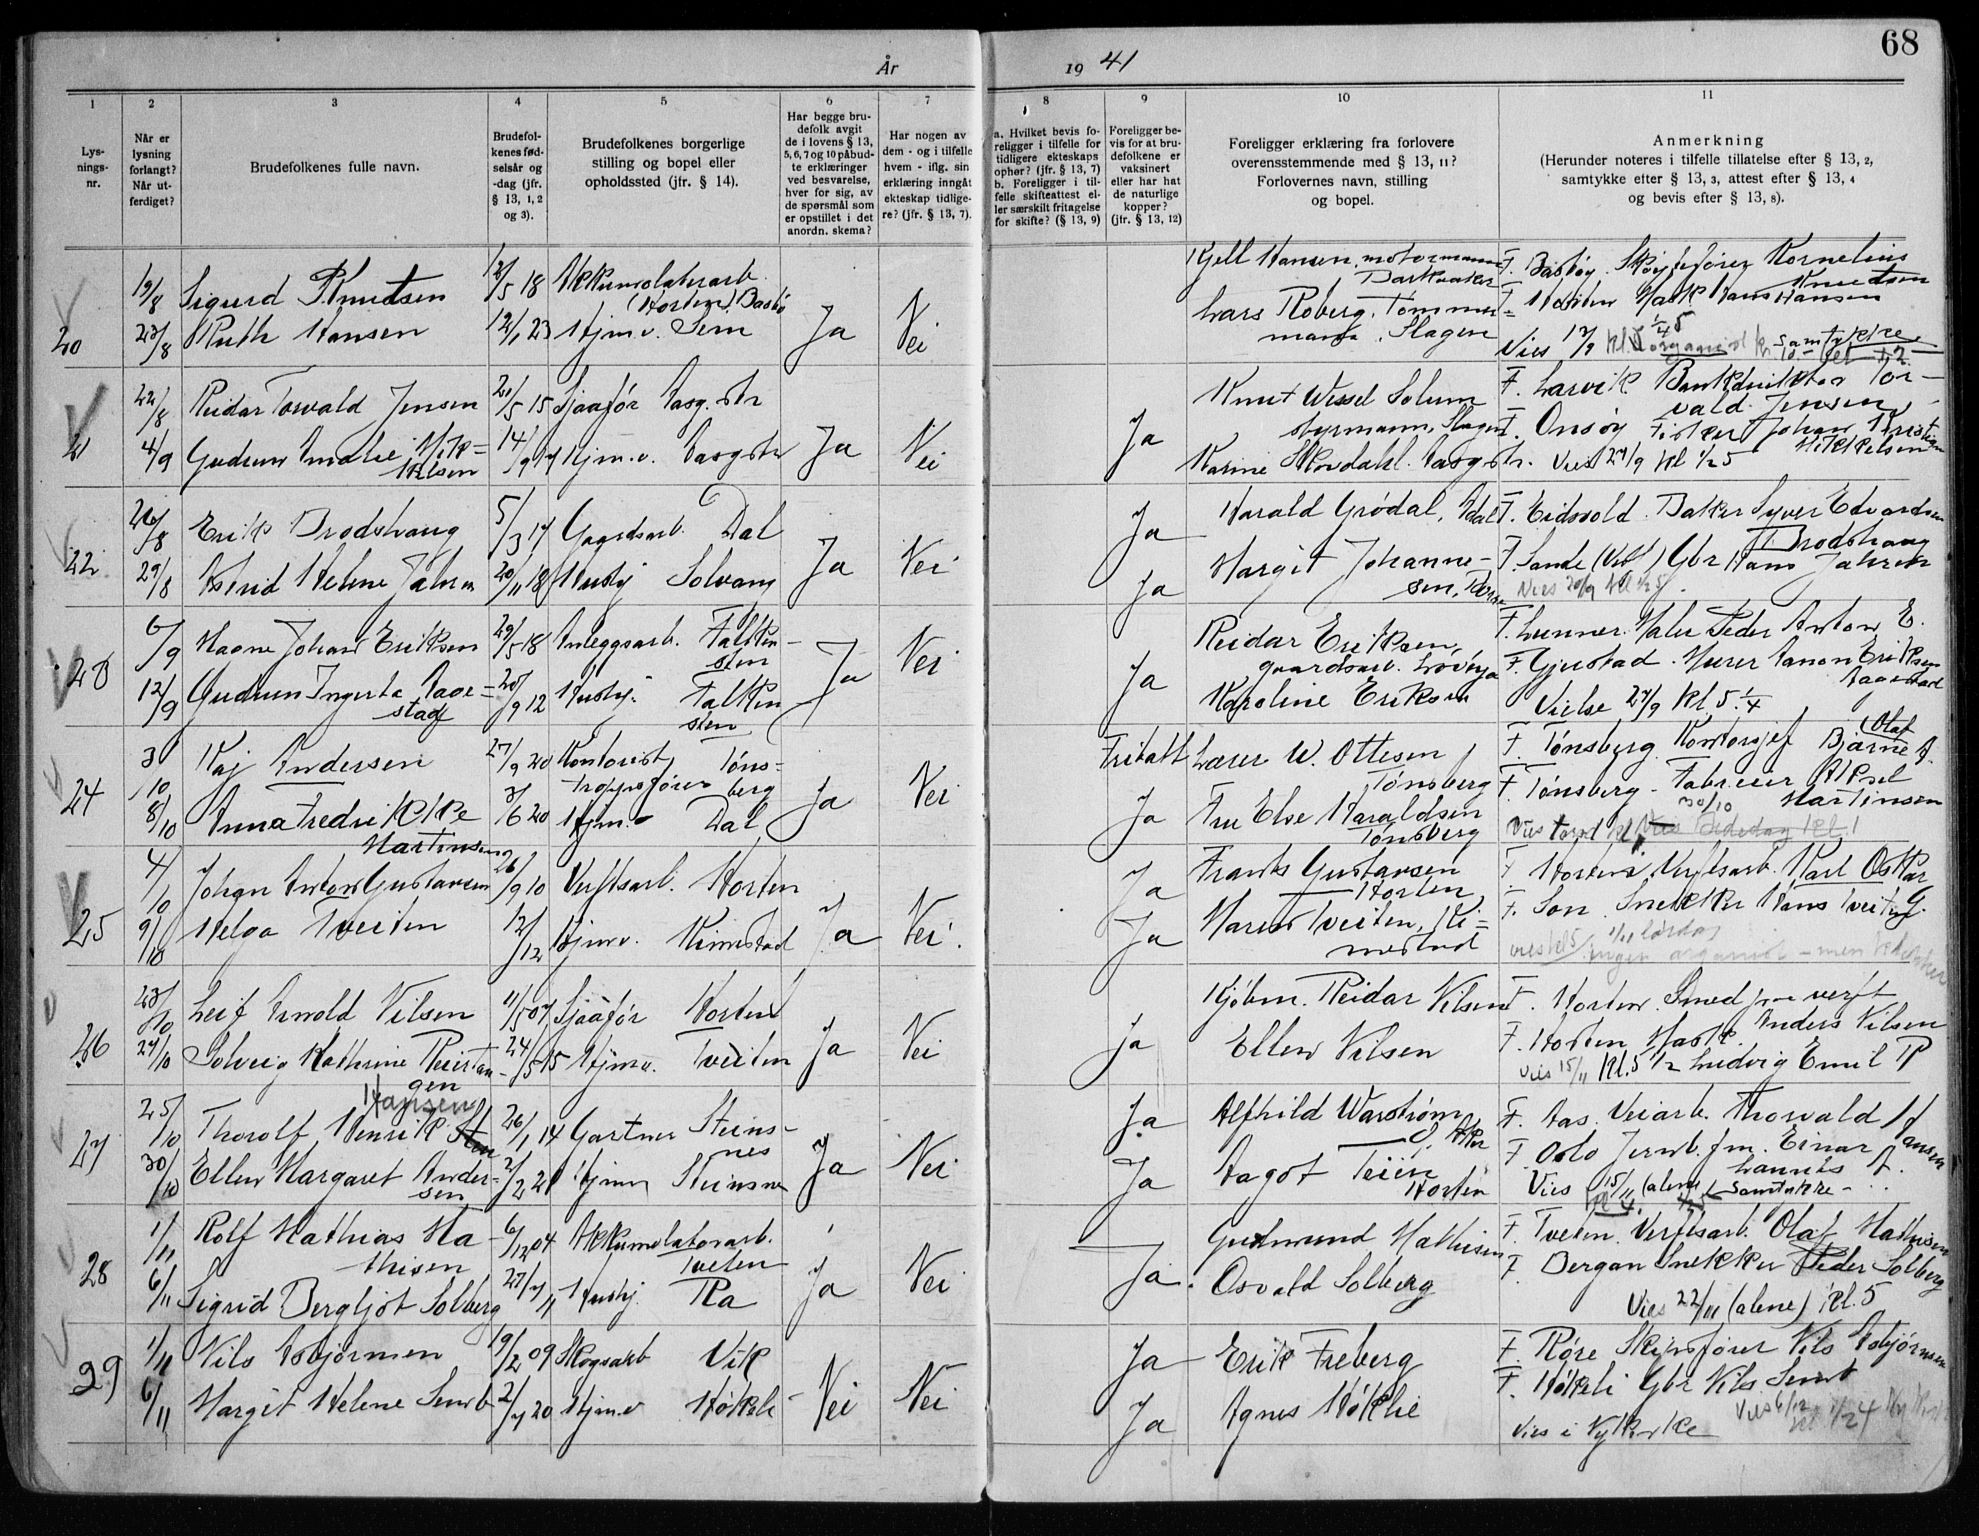 68
År 19 41
1 2 3 4 5 6 7 8 9 10 11
Lys-
nings-
nr.
Når er
lysning
forlangt?
Når ut-
ferdiget?
Brudefolkenes fulle navn.
Brudefol-
kenes fød-
selsår og
-dag (jfr.
§ 13, 1, 2
og 3).
Brudefolkenes borgerlige
stilling og bopel eller
opholdssted (jfr. § 14).
Har begge bru-
defolk avgit
de i lovens § 13,
5, 6, 7 og 10 påbud-
te erklæringer
ved besvarelse,
hver for sig, av
de spørsmål som
er opstillet i det
anordn. skema?
Har nogen av
dem - og i tilfelle
hvem - iflg. sin
erklæring inngått
ekteskap tidlige-
re? (jfr. § 13, 7).
a. Hvilket bevis fo-
religger i tilfelle for
tidligere ekteskaps
ophør? (jfr. § 13, 7)
b. Foreligger i til-
felle skifteattest el-
ler særskilt fritagelse
for skifte? (§ 13, 9)
Foreligger be-
vis for at bru-
defolkene er
vaksinert
eller har hat
de naturlige
kopper?
(jfr. § 13, 12)
Foreligger erklæring fra forlovere
overensstemmende med § 13, 11?
Forlovernes navn, stilling
og bopel.
Anmerkning
(Herunder noteres i tilfelle tillatelse efter § 13, 2,
samtykke efter § 13, 3, attest efter § 13, 4
og bevis efter § 13, 8).
19/8 Sigurd Knudsen 12/5 18 Akkumolatorarb.
(Horten) Bastø
20 23/8 Ruth Hansen 12/1 23 Hjm.v. Sem Ja Nei
Kjell Hansen, motormann
Barkaaker
Lars Roberg. Tømmer
mann, Slagen
F. Bastøy. Skøytefører Kornelius
Knudsen
F. Horten Mask Hans Hansen
Vies 13/9 kl. samtykke
22/8 Reidar Torvald Jensen 21/5 15 Sjaafør Aasg.str
21 4/9 Gudrun Amalie Mik=
kelsen 14/9 17 Hjm.v. Aasgstr Ja Nei
Ja
Knut Wessel Solum
styrmann, Slagen
Karine Skovdahl. Aasgstr.
F. Larvik Bankdirektør Tor-
vald Jensen
F. Onsøy Fisker Johan Kristian
Mikkelsen
Vies 27/9 kl 1/2 5
26/8 Erik Brodshaug 5/3 17 Gaardsarb. Dal
22 29/8 Astrid Helene Jahren 20/11 18 Hushj Solvang Ja Nei
Ja Harald Grødal, Adal
Ja Margit Johanne-
sen,
F. Eidsvold. Baker Syver Edvardsen
Brodshaug
F. Sande (Vestf) Gbr Hans Jahren
Vies 20/9 kl 1/2 5
6/9 Magne Johan Eriksen 29/5 18 Anleggsarb. Falken-
sten
23 12/9 Gudrun Ingerta Aage=
stad 20/9 12 Hushj. Falken
sten Ja Nei
Ja
Reidar Eriksen,
gaardsarb. Løvøya
Karoline Eriksen
F. Lunner. Maler Peder Anton E.
F. Gjerstad. Murer Aanon Eriksen
Aagestad
Vielse 27/9 kl. 5 1/4
3/10 Kaj Andersen 27/9 20 Kontorist Tøns=
Troppsfører berg
24 8/10 Anna Fredrikke
Martinsen 3/6 20 Hjm.v Dal Ja Nei
Fritatt Lærer W. Ottesen
Tønsberg
Ja Fru Else Haraldsen
Tønsberg
F. Tønsberg. Kontorsjef Bjarne Olaf A.
F. Tønsberg - Fabreier Aksel
Martinsen
30/10
Vies Vies Bededag kl. 1
4/10 Johan Anton Gustavsen 26/9 10 Verftsarb. Horten
25 9/10 Helga Tveiten 12/12 Hjmv. Kimestad Ja Nei.
Ja Frants Gustavsen
Horten
Ja Maren Tveiten, Ki=
mestad
F. Horten, Verftsarb. Karl Oskar G.
F. Son. Snekker Hans Tveiten
1/11 lørdag
vies kl 5 ingen organist - men klokker
23/10 Leif Arnold Nilsen 11/5 07 Sjaafør Horten
26 24/10 Solveig Kathrine Reiertan-
gen 24/5 15 Hjm.v. Tveiten Ja Nei
Ja
Kjøbm. Reidar Nilsen
Ellen Nilsen
F. Horten. Smed verft
Anders Nilsen
F. Horten Mask. Ludvig Emil R
Vies 15/11 kl. 5 1/2
Hansen
25/10 Thorolf Henrik 26/1 14 Gartner Steins-
nes
27 30/10 Ellen Margaret Ander-
sen 2/2 21 Hjmv Steinsnes Ja Nei
Ja Alfhild Warstrøm
Ø. Aker
Ja Aagot Teien
Horten
F. Aas. Veiarb. Thorvald Hansen
F. Oslo Jernb.fm. Einar
Lannes A.
Vies 15/11 (alene) samtykke
kl 4.
1/11 Rolf Mathias Ma-
thisen 6/12 04 Akkumolatorarb.
Tveten
28 6/11 Sigrid Bergljot Solberg 27/7 11 Hushj. Ra Ja Nei
Ja.
Gudmund Mathisen
Osvald Solberg
F. Tveten. Verftsarb. Olaf Mathisen
F. Bergan Snekker Peder Solberg
Vies 22/11 (alene) kl. 5
1/11 Nils Asbjørnsen 19/2 09 Skogsarb Vik
29 6/11 Margit Helene Semb 2/7 20 Hjm.v Høkeli Nei Nei
Ja Erik Freberg
Ja Agnes Høklie
F. Røre Skipsfører Nils Asbjørnsen
F. Høkeli Gbr Nils Semb
Vies 6/12
Vies i Nykirke kl 1/2 4